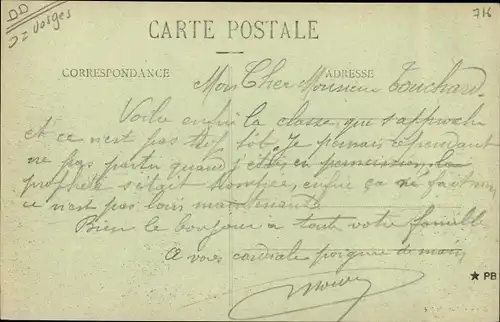 DD
J= Vosges
716
CARTE POSTALE
CORRESPONDANCE
ADRESSE
Mon Cher Monsieur Touchard
Voila enfin la classe qui s'approche
et ce n'est pas trop tôt. Je pensais cependant
ne pas partir quand j'étais en permission, la
prophète s'était trompée, enfin ça
ce n'est pas loin maintenant
Bien le bonjour a toute votre famille
A vous cordiale poignée de main,
★ PB